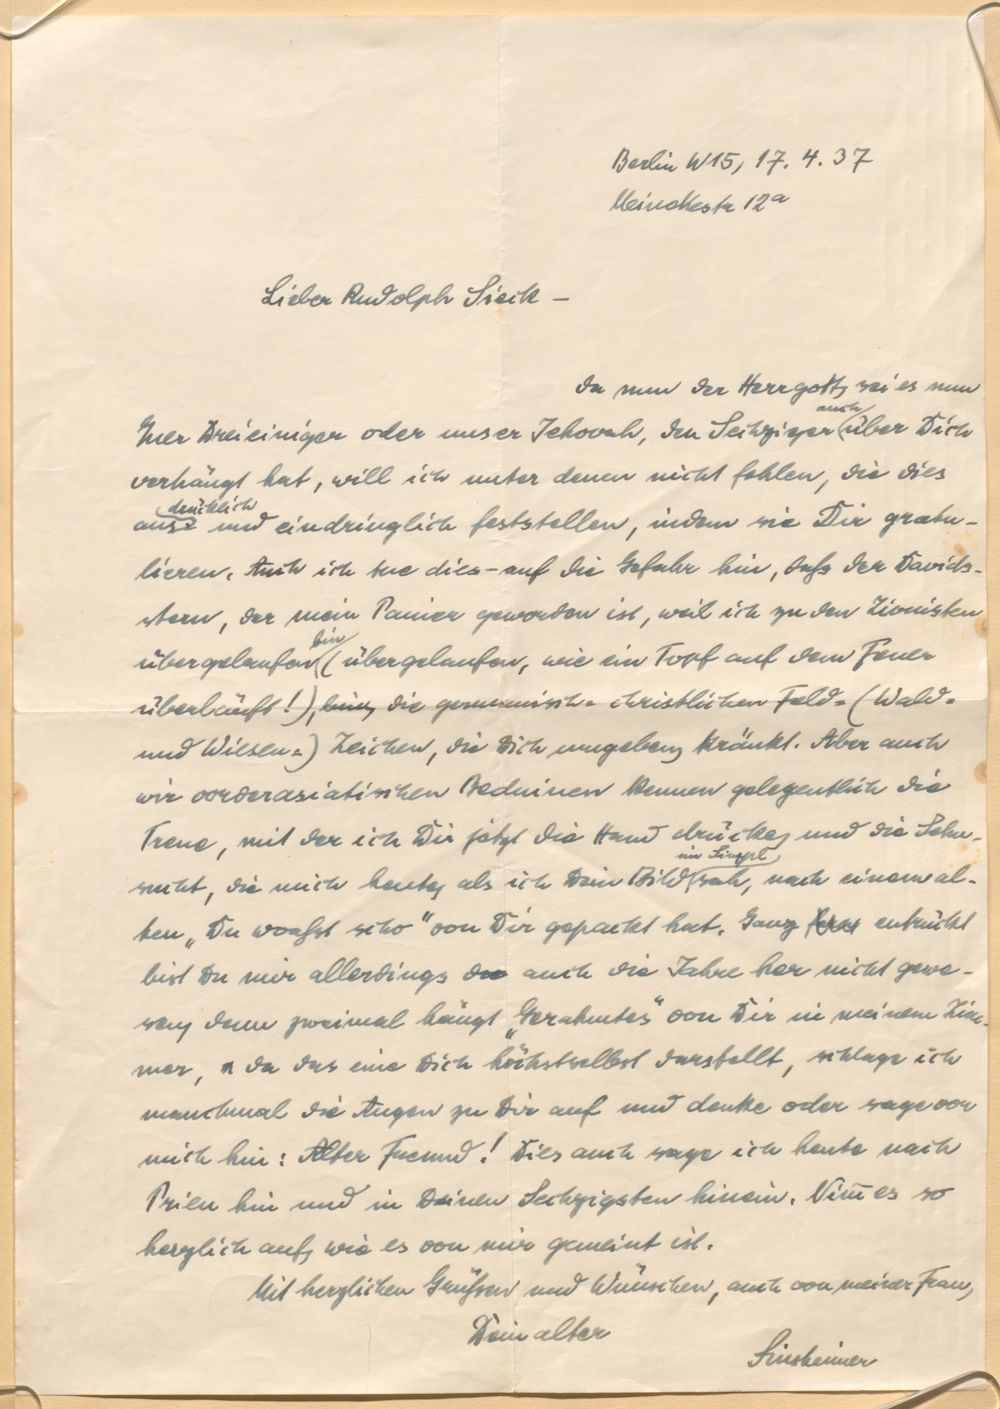 Berlin W15, 17. 4. 37
Meinekestr 12a
Lieber Rudolph Sieck –
da nun der Herrgott, sei es nun
Euer Dreieiniger oder unser Jehovah, den Sechziger auch über Dich
verhängt hat, will ich unter denen nicht fehlen, die dies
ausdrücklich und eindringlich feststellen, indem sie Dir gratu-
lieren. Auch ich tue dies – auf die Gefahr hin, dass der Davids-
stern, der mein Panier geworden ist, weil ich zu den Zionisten
übergelaufen bin (übergelaufen, wie ein Topf auf dem Feuer
überläuft!), die germanisch-christlichen Feld- (Wald-
und Wiesen-) Zeichen, die Dich umgeben, kränkt. Aber auch
wir vorderasiatischen Beduinen kennen gelegentlich die
Treue, mit der ich Dir jetzt die Hand drücke, und die Sehn-
sucht, die mich heute, als ich Dein Bild im Simpl sah, nach einem al-
ten „Du woasst scho" von Dir gepackt hat. Ganz entrückt
bist Du mir allerdings auch die Jahre her nicht gewe-
sen, denn zweimal hängt „Gerahmtes" von Dir in meinem Zim-
mer, da das eine Dich höchstselbst darstellt, schlage ich
manchmal die Augen zu Dir auf und denke oder sage vor
mich hin: Alter Freund! Dies auch sage ich heute nach
Prien hin und in Deinen Sechzigsten hinein. Nim̄ es so
herzlich auf, wie es von mir gemeint ist.
Mit herzlichen Grüßen und Wünschen, auch von meiner Frau,
Dein alter
Sinsheimer